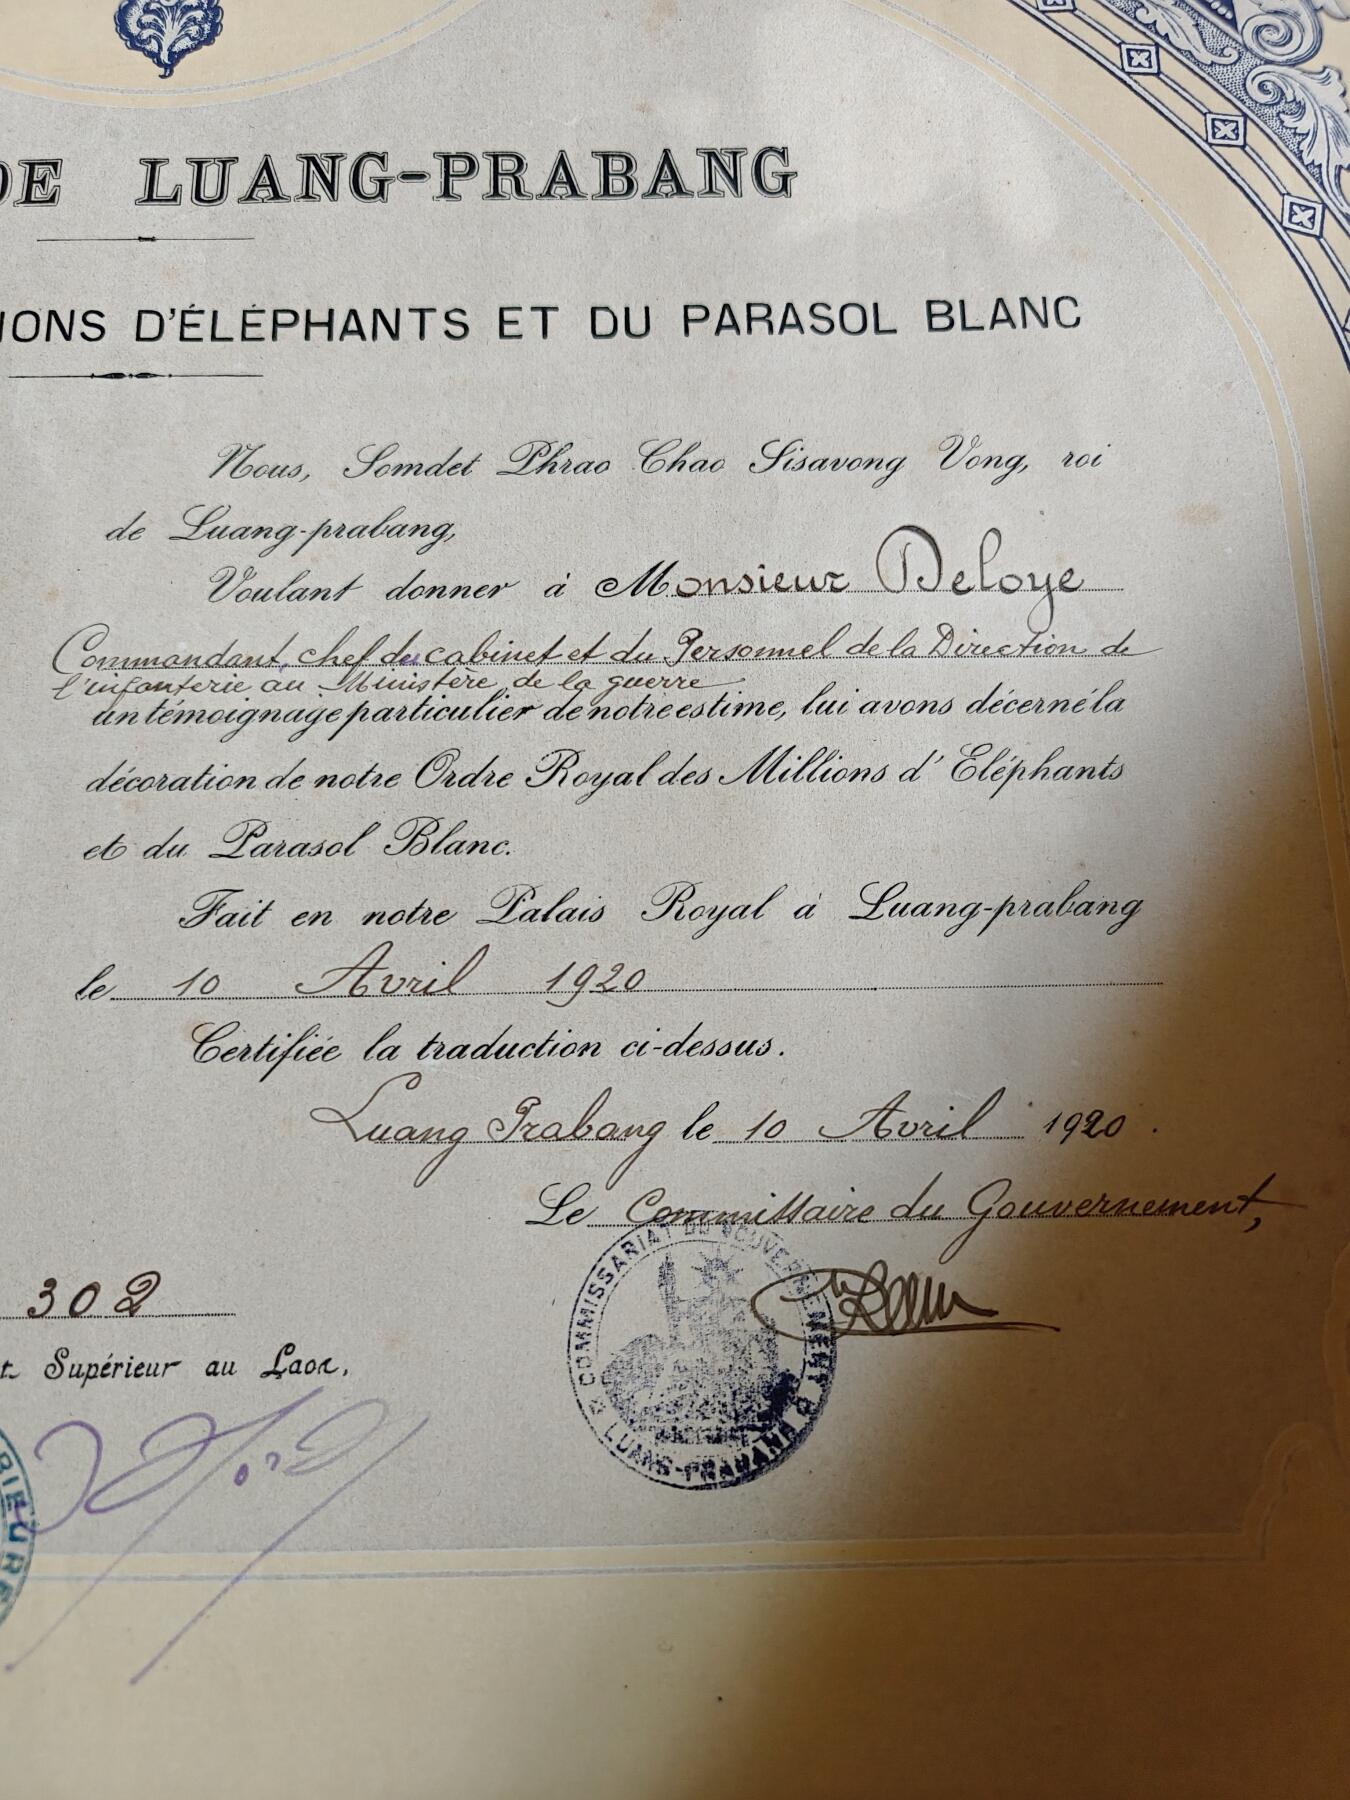 DE LUANG-PRABANG
IONS D'ÉLÉPHANTS ET DU PARASOL BLANC
Nous, Somdet Phrao Chao Sisavong Vong, roi
de Luang-prabang,
Voulant donner à Monsieur Deloye
Commandant, chef du cabinet et du Personnel de la Direction de
l'infanterie au Ministère de la guerre
un témoignage particulier de notre estime, lui avons décerné la
décoration de notre Ordre Royal des Millions d'Eléphants
et du Parasol Blanc.
Fait en notre Palais Royal à Luang-prabang
le 10 Avril 1920
Certifiée la traduction ci-dessus.
Luang Prabang le 10 Avril 1920.
Le Commissaire du Gouvernement,
COMMISSARIAT DU GOUVERNEMENT
LUANG-PRABANG
302
t Supérieur au Laos,
RIEURE